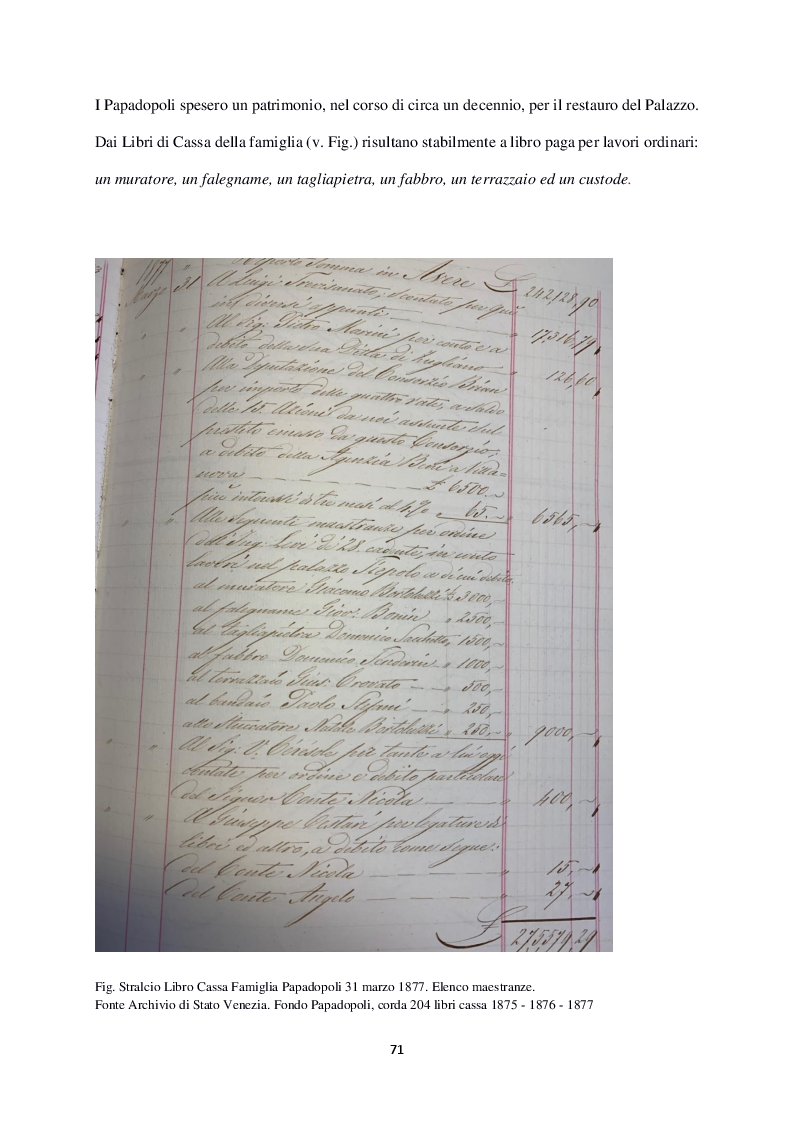 I Papadopoli spesero un patrimonio, nel corso di circa un decennio, per il restauro del Palazzo.
Dai Libri di Cassa della famiglia (v. Fig.) risultano stabilmente a libro paga per lavori ordinari:
un muratore, un falegname, un tagliapietra, un fabbro, un terrazzaio ed un custode.
1877 Somma in Avere £ 242128,90
Marzo 31 A Luigi Trevisanato, scontato per qui
in diversi appunti " 17,316,79
" " Al Sig. Pietro Marini per conto e a
debito della sua Ditta di Zugliano " 126,60
" " Alla Deputazione del Consorzio Brian
per importo delle quattro rate, a saldo
delle 15. Azioni da noi assunte del
prestito emesso da questo Consorzio,
a debito della Agenzia Beni a Villa=
nova £ 6500.~
più interessi di tre mesi al 4% " 65.~ " 6565,~
" " Alle seguenti maestranze per ordine
del Sig. Levi di 28. cadente, in conto
lavori nel palazzo Tiepolo a di cui debito
al muratore Giacomo Bortoluzzi £ 3000,~
al falegname Giov. Bonin " 2500,~
al tagliapietra Domenico " 1500,~
al fabbro Domenico " 1000,~
al terrazzaio Gius. Crovato " 500,~
al bandaio Paolo " 250,~
allo Stuccatore Natale Bortoluzzi " 250.~ " 9000,~
" " Al Sig. V. Ceresole per tante a lui
contate per ordine e debito particolare
del Signor Conte Nicola " 400,~
" " A Giuseppe per legature di
libri ed altro, a debito come segue:
del Conte Nicola " 15,~
del Conte Angelo " 27,~
£ 275579,29
Fig. Stralcio Libro Cassa Famiglia Papadopoli 31 marzo 1877. Elenco maestranze.
Fonte Archivio di Stato Venezia. Fondo Papadopoli, corda 204 libri cassa 1875 - 1876 - 1877
71